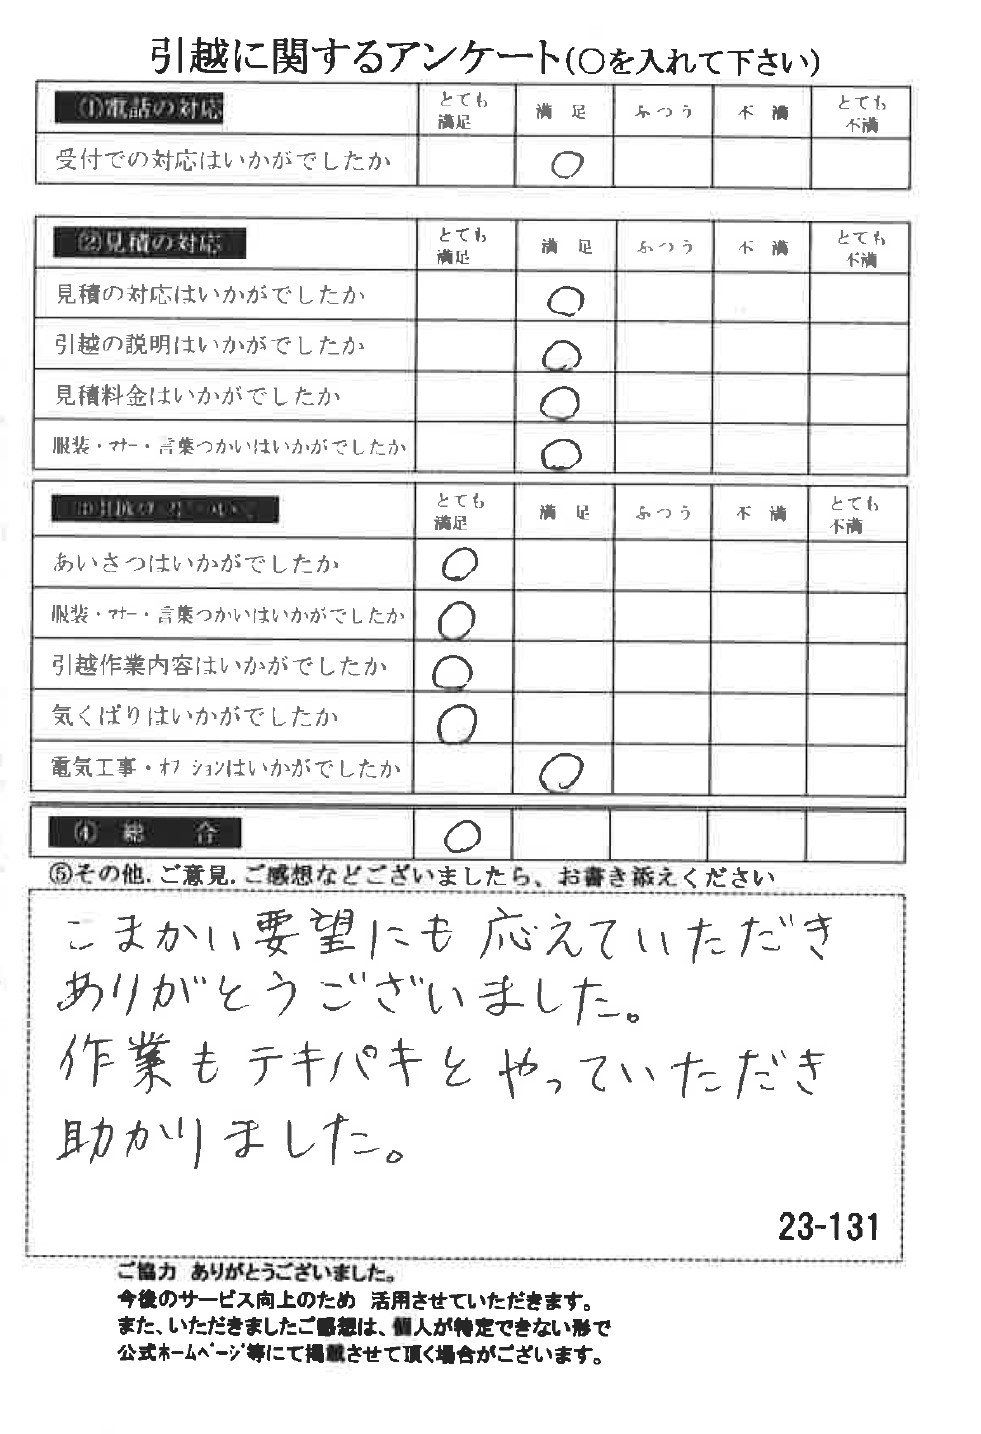 引越に関するアンケート(〇を入れて下さい)
①電話の対応 とても満足 満足 ふつう 不満 とても不満
受付での対応はいかがでしたか 〇
②見積の対応 とても満足 満足 ふつう 不満 とても不満
見積の対応はいかがでしたか 〇
引越の説明はいかがでしたか 〇
見積料金はいかがでしたか 〇
服装・マナー・言葉つかいはいかがでしたか 〇
とても満足 満足 ふつう 不満 とても不満
あいさつはいかがでしたか 〇
服装・マナー・言葉つかいはいかがでしたか 〇
引越作業内容はいかがでしたか 〇
気くばりはいかがでしたか 〇
電気工事・オプションはいかがでしたか 〇
④ 総 合 〇
⑤その他.ご意見.ご感想などございましたら、お書き添えください
こまかい要望にも応えていただき
ありがとうございました。
作業もテキパキとやっていただき
助かりました。
23-131
ご協力 ありがとうございました。
今後のサービス向上のため 活用させていただきます。
また、いただきましたご感想は、個人が特定できない形で
公式ホームページ等にて掲載させて頂く場合がございます。